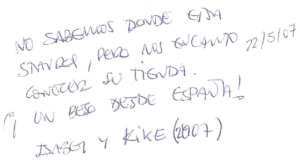 NO SABEMOS DONDE ESTA
PERO NOS ENCANTO 22/5/07
CONOCER SU TIENDA.
¡ UN BESO DESDE ESPAÑA!
ISABEL Y KIKE (2007)